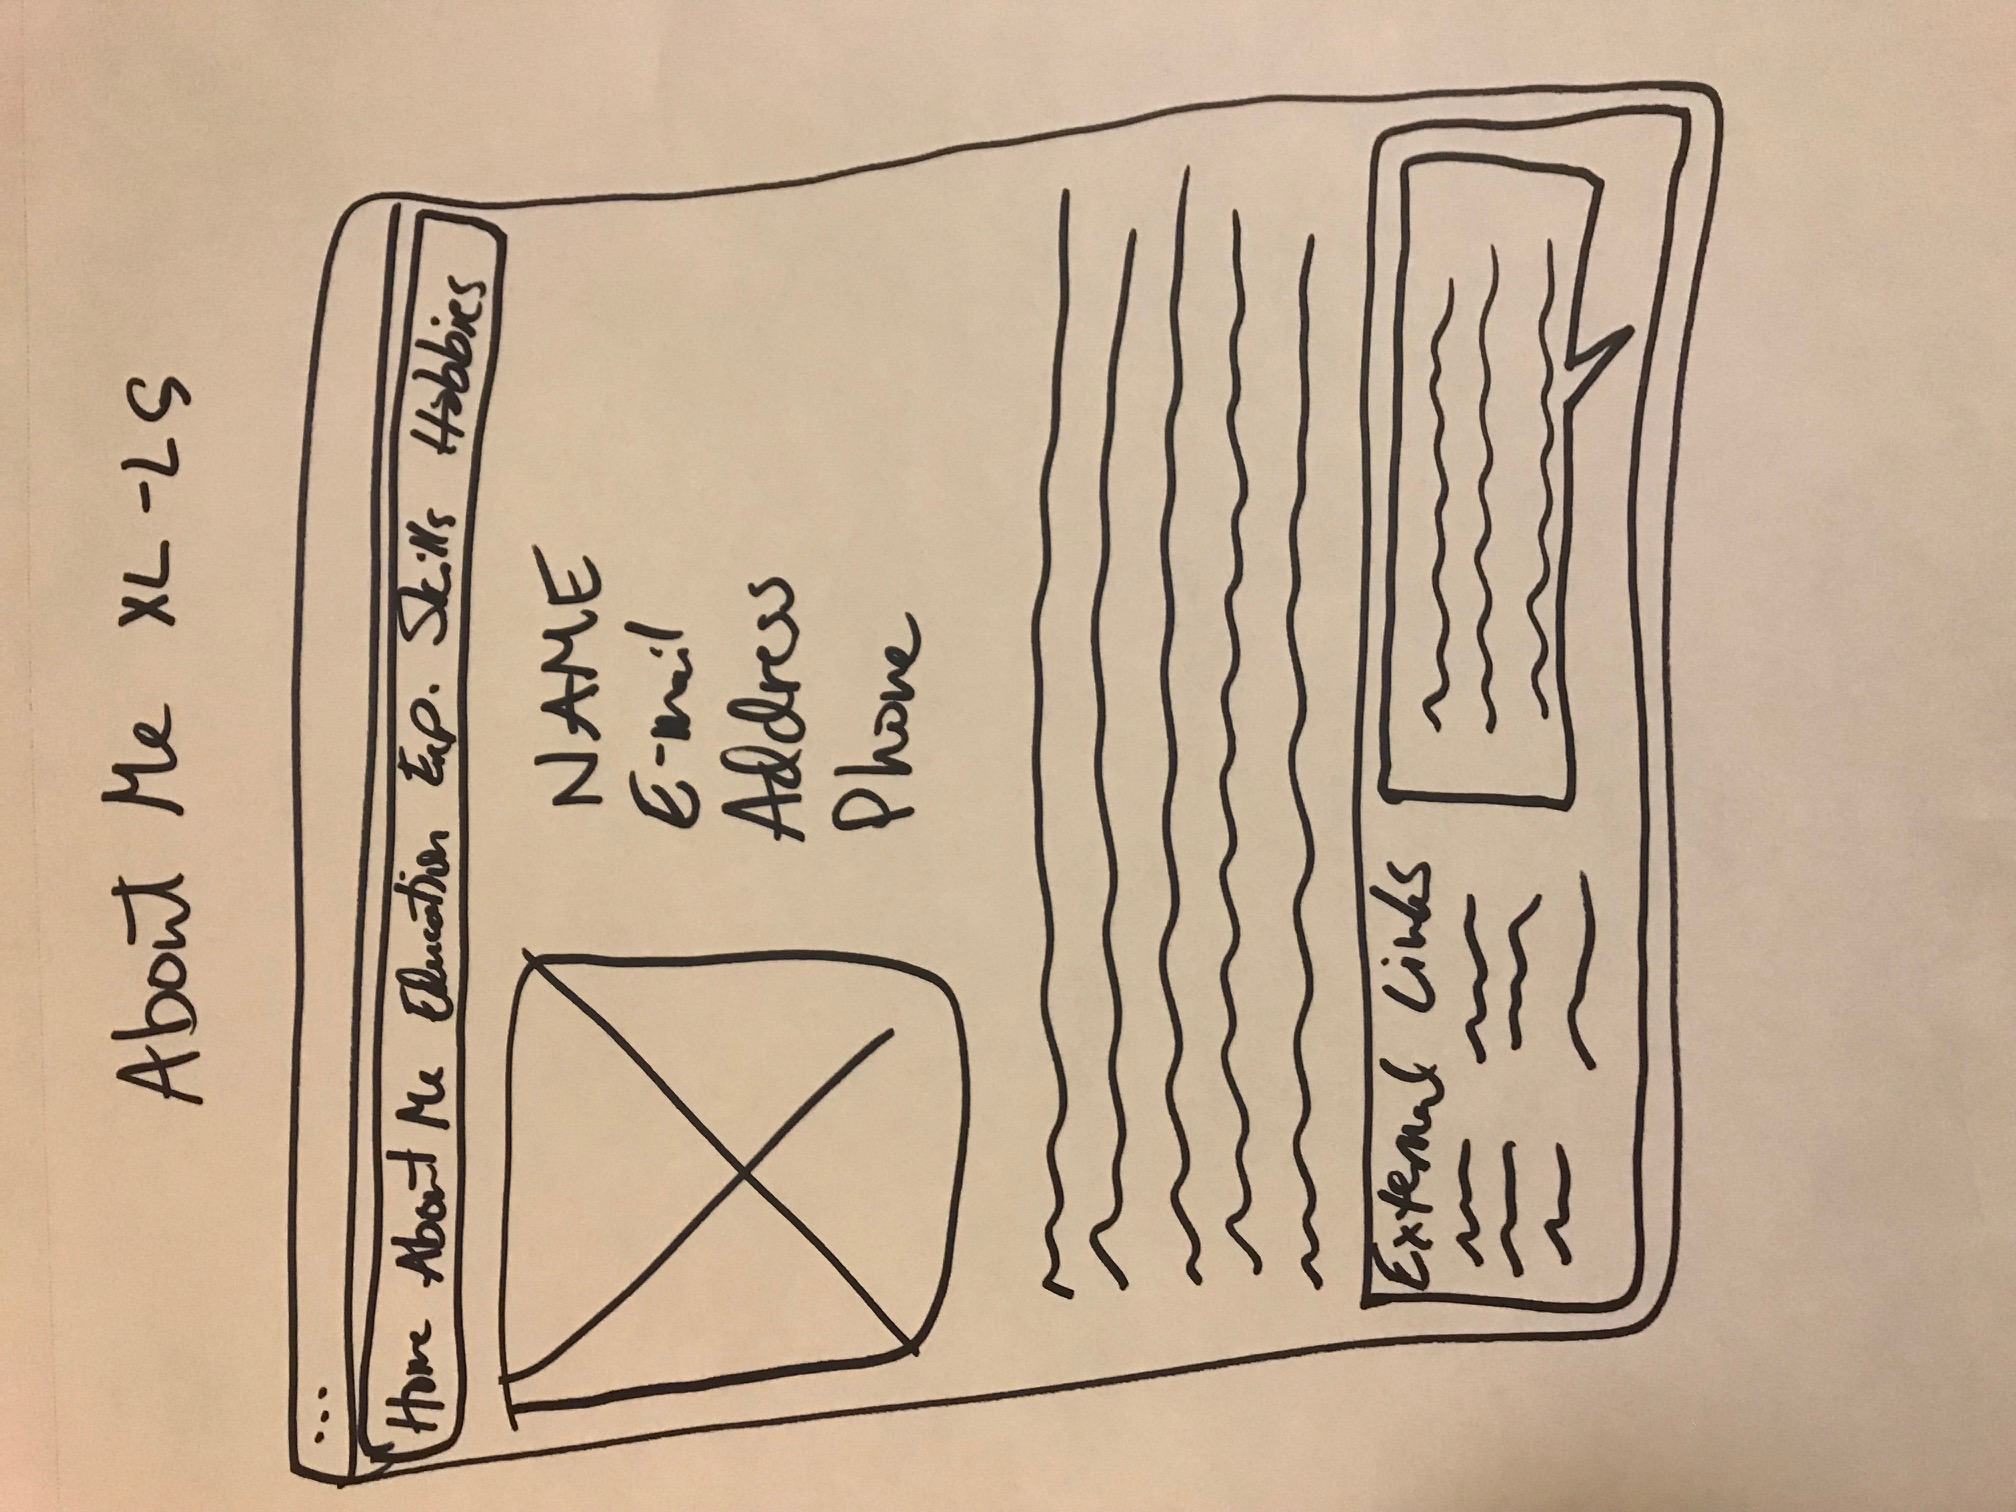 About Me XL-LS
Home About Me Education Exp. Skills Hobbies
NAME
E-mail
Address
Phone
External Links